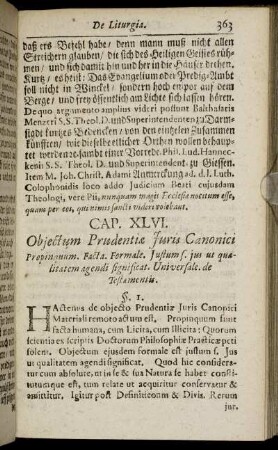 De Liturgia. 363
daß ers Befehl habe/ denn mann muß nicht allen
Streichern glauben/ die sich des Heiligen Geistes rüh-
men/ und sich damit hin und her in die Häuser drehen.
Kurtz/ es heist: Das Evangelium oder Predig-Ambt
soll nicht in Winckel/ sondern hoch empor auf dem
Berge/ und frey öffentlich am Lichte sich lassen hören.
De quo argumento amplius videri possunt Balthasaris
Menzeri S.S. Theol. D. und Superintendenten zu Darm-
stadt kurtzes Bedencken/ von den einzelen Zusammen
Künfften/ wie dieselbe etlicher Orthen wollen behaup-
tet werden zusambt einer Vorrede. Phil. Lud. Hanne-
kenii S.S. Theol. D. und Superintendent. zu Giessen.
Item M. Joh. Christ. Adami Anmerckung ad. d. l. Luth.
Colophonidis loco addo Judicium Beati cujusdam
Theologi, vere Pii, nunquam magis Ecclesiæ nocitum esse,
quam per eos, qui nimis sancti videri volebant.
CAP. XLVI.
Objectum Prudentiæ Juris Canonici
Propinquum. Facta. Formale. Justum s. jus ut qua-
litatem agendi significat. Universale. de
Testamentis.
§. 1.
HActenus de objecto Prudentiæ Juris Canonici
Materiali remoto actum est. Propinquum sunt
facta humana, cum Licita, cum Illicita: Quorum
scientia ex scriptis Doctorum Philosophiæ Practicæ peti
solent. Objectum ejusdem formale est justum s. Jus
ut qualitatem agendi significat. Quod hic considera-
tur cum absolute, ut in se & sua Natura se habet consti-
tutumque est, tum relate ut acquiritur conservatur &
amittitur. Igitur post Definitionem & Divis. Rerum
jur.